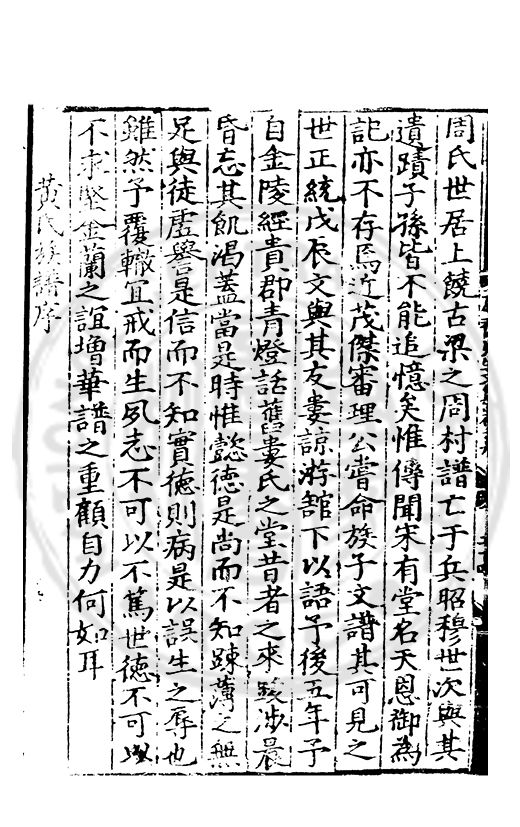 周氏世居上饒古梁之周村譜亡于兵昭穆世次與其
遺蹟子孫皆不能追憶矣惟傳聞宋有堂名天恩御為
記亦不存焉近茂傑審理公嘗命族子文譜其可見之
世正統戊辰文與其友婁諒游館下以語予後五年予
自金陵經貴郡青燈話舊婁氏之堂昔者之來跋涉晨
昏忘其飢渴蓋當是時惟懿德是尚而不知踈薄之無
足與徒虛譽是信而不知實德則病是以誤生之辱也
雖然予覆轍宜戒而生夙志不可以不篤世德不可以
不求堅金蘭之誼增華譜之重顧自力何如耳
黃氏族譜序